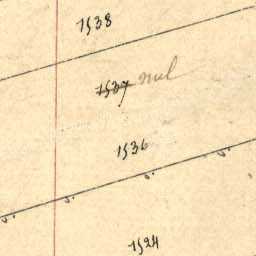 1538
1537 nul
1536
1524